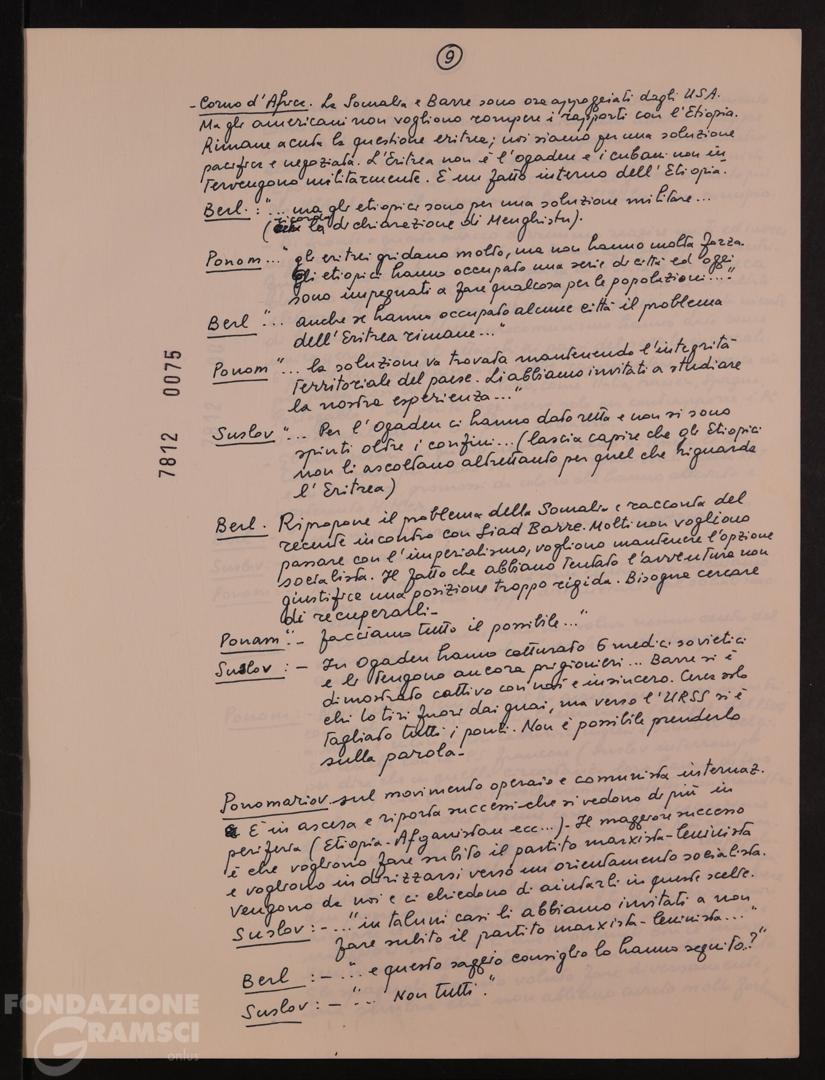 9
- Corno d'Africa. La Somalia e Barre sono ora appoggiati dagli USA.
Ma gli americani non vogliono rompere i rapporti con l'Etiopia.
Rimane acuta la questione eritrea; noi siamo per una soluzione
pacifica e negoziata. L'Eritrea non è l'ogaden e i cubani non in
tervengono militarmente. È un fatto interno dell'Etiopia.
Berl.: "... ma gli etiopici sono per una soluzione militare...
(ricorda la dichiarazione di Menghistu).
Ponom..." gli eritrei gridano molto, ma non hanno molta forza.
Gli etiopici hanno occupato una serie di città ed oggi
sono impegnati a fare qualcosa per le popolazioni..."
Berl "... anche se hanno occupato alcune città il problema
dell'Eritrea rimane..."
Ponom "... la soluzione va trovata mantenendo l'integrità
territoriale del paese. Li abbiamo invitati a studiare
la nostra esperienza..."
Suslov "... Per l'Ogaden ci hanno dato retta e non si sono
spinti oltre i confini... (lascia capire che gli Etiopici
non li ascoltano altrettanto per quel che riguarda
l'Eritrea)
Berl. Ripropone il problema della Somalia e racconta del
recente incontro con Siad Barre. Molti non vogliono
passare con l'imperialismo, vogliono mantenere l'opzione
socialista. Il fatto che abbiano tentato l'avventura non
giustifica una posizione troppo rigida. Bisogna cercare
di recuperarli -
Ponom "- facciamo tutto il possibile..."
Suslov : - In Ogaden hanno catturato 6 medici sovietici
e li tengono ancora prigionieri... Barre si è
dimostrato cattivo con noi e insincero. Cerca solo
chi lo tiri fuori dai guai, ma verso l'URSS si è
tagliato tutti i ponti. Non è possibile prenderlo
sulla parola -
Ponomariov - sul movimento operaio e comunista internaz.
È in ascesa e riporta successi che si vedono di più in
periferia (Etiopia - Afganistan ecc...) - Il maggiore successo
è che vogliono fare subito il partito marxista-leninista
e vogliono indirizzarsi verso un orientamento socialista.
Vengono da noi e ci chiedono di aiutarli in queste scelte.
Suslov : - ..."in taluni casi li abbiamo invitati a non
fare subito il partito marxista-leninista..."
Berl : - "... e questo saggio consiglio lo hanno seguito?"
Suslov : - "... Non tutti".
7812 0075
FONDAZIONE
GRAMSCI
onlus